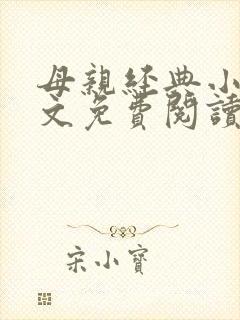 母親經典小
文免費閱讀
宋小寶